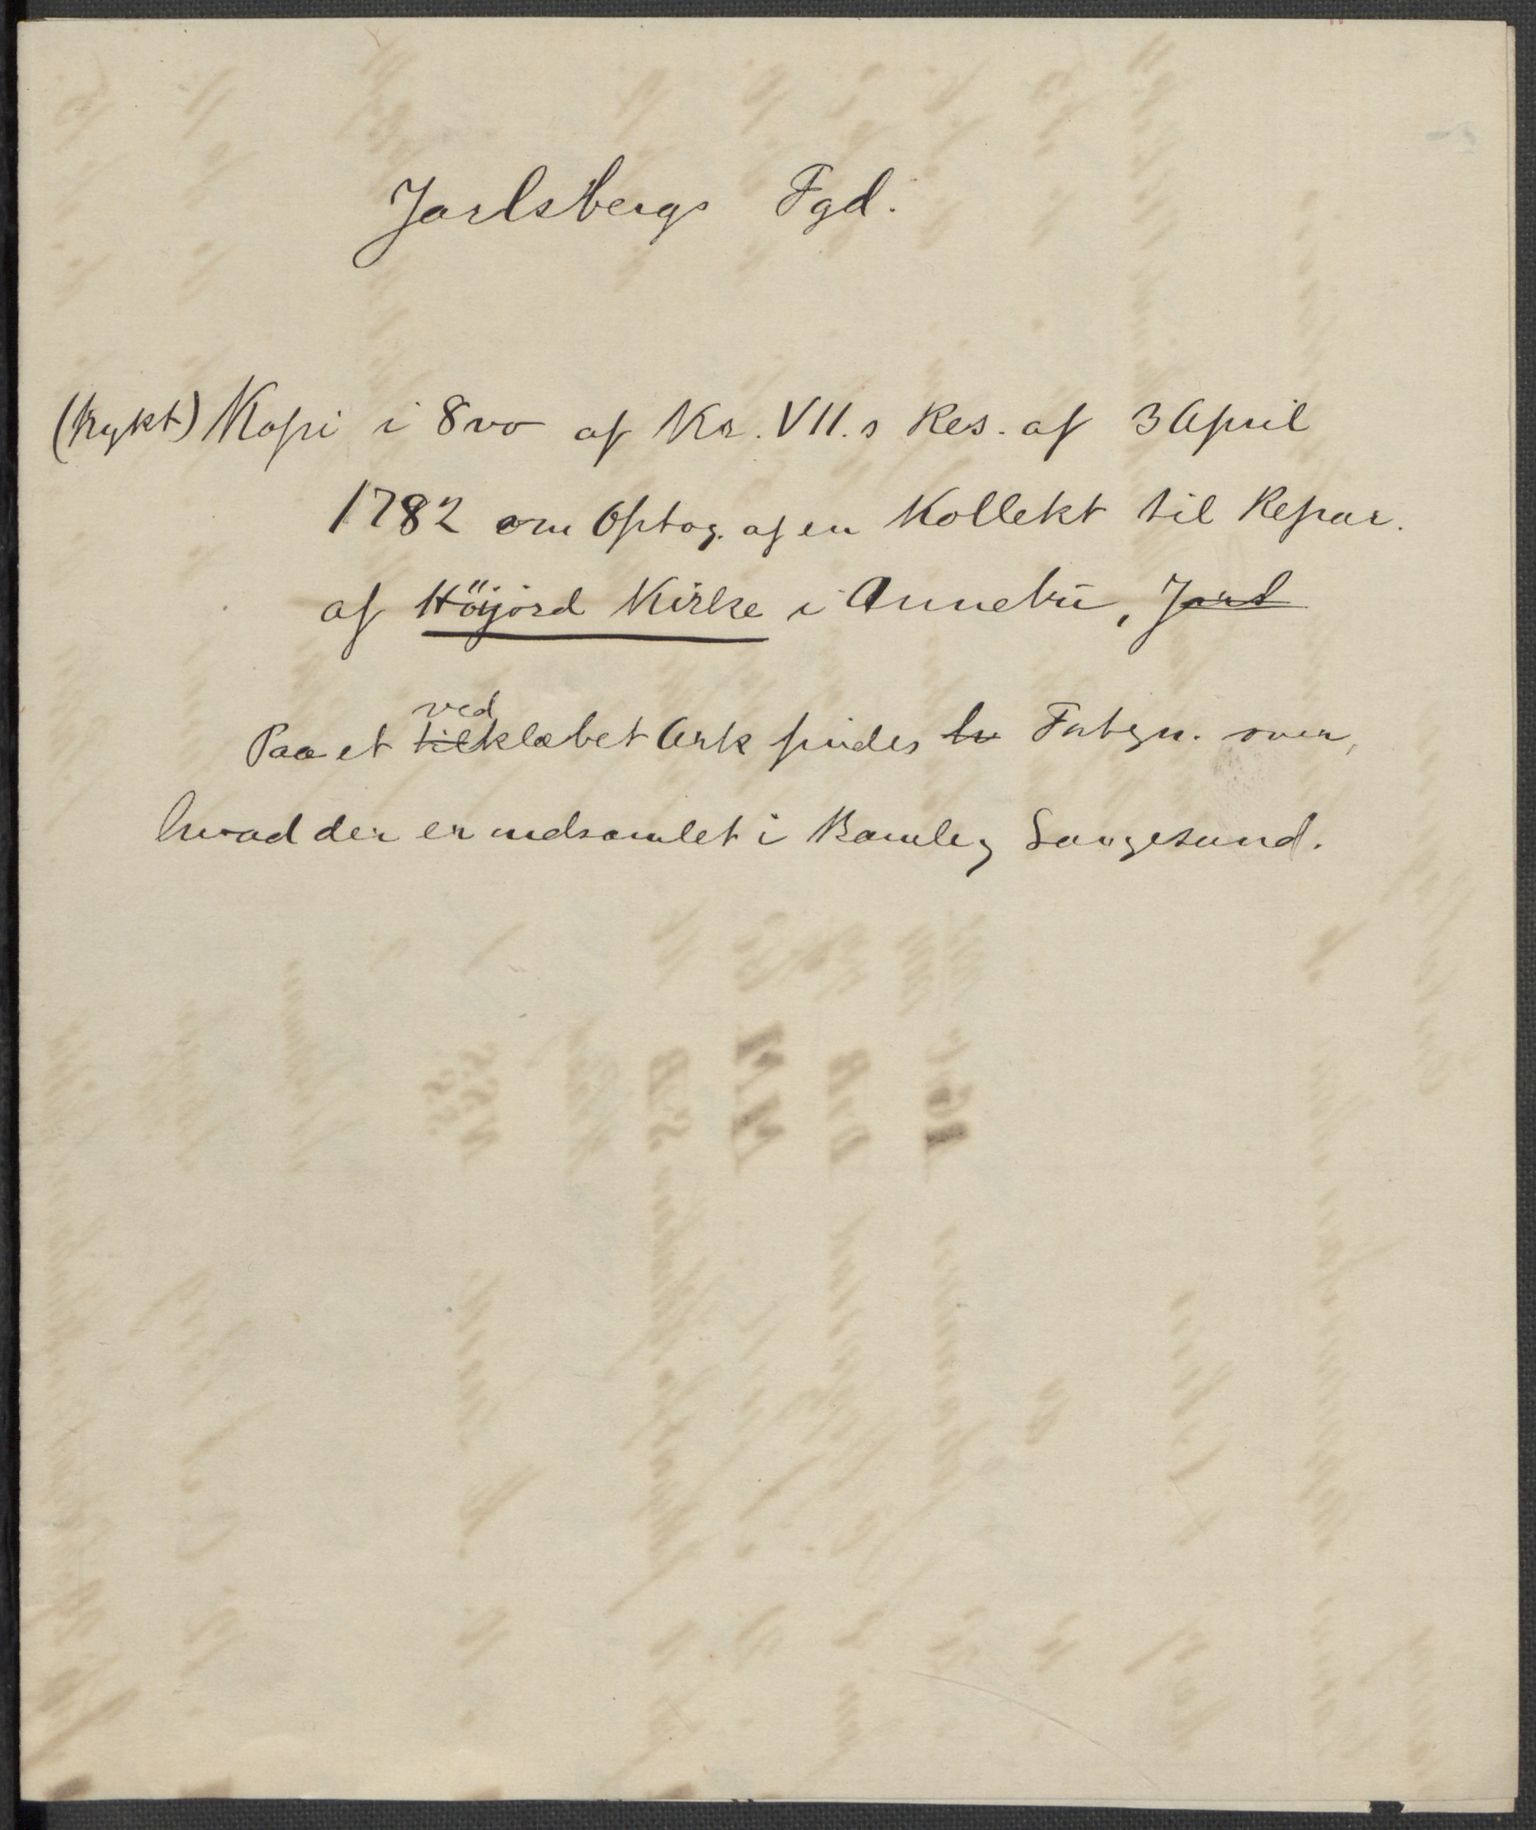 Jarlsbergs Fgd.
(trykt) Kopi i 8vo af Kr. VII.s Res. af 3 April
1782 om Optag. af en Kollekt til Repar.
af Höijord Kirke i Annebü, Jarl
ved
Paa et tilklæbet Ark findes en Fortegn. over,
hvad der er indsamlet i Bamle og Langesund.